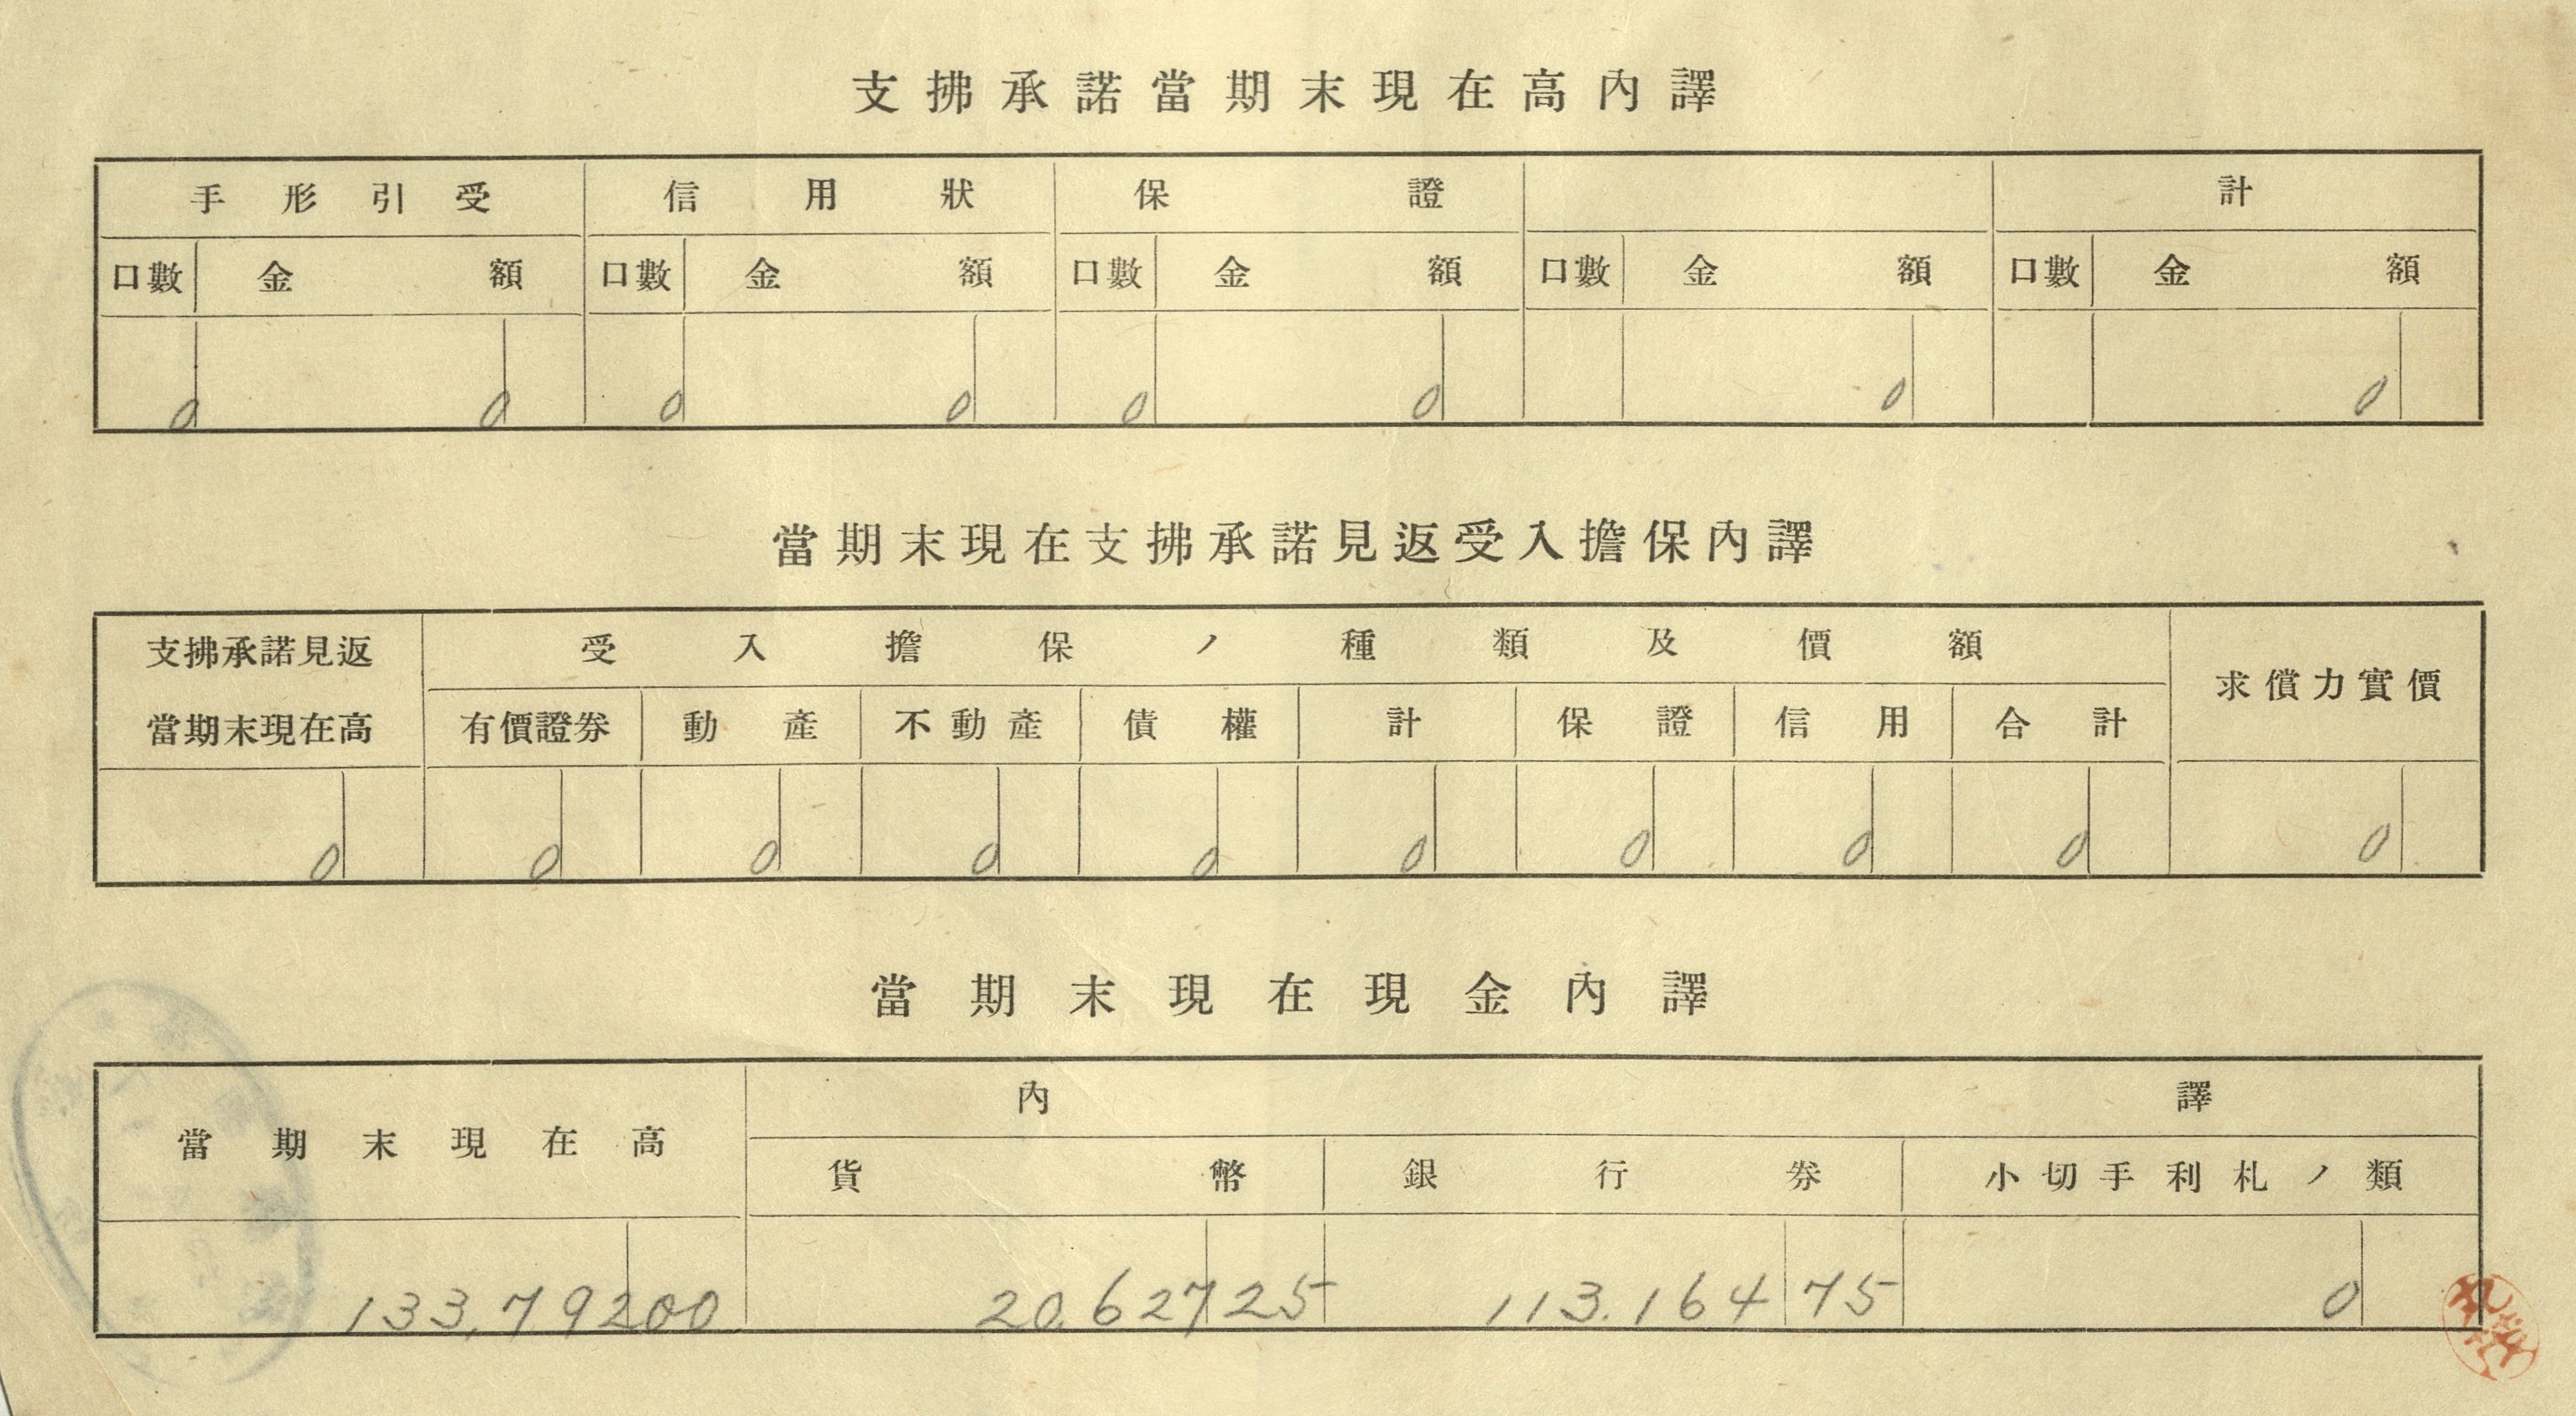 支拂承諾當期末現在高內譯
手形引受 信用狀 保證 計
口數 金額 口數 金額 口數 金額 口數 金額 口數 金額
0 0 0 0 0 0 0 0
當期末現在支拂承諾見返受入擔保內譯
支拂承諾見返 受入擔保ノ種類及價額 求償力實價
當期末現在高 有價證券 動產 不動產 債權 計 保證 信用 合計
0 0 0 0 0 0 0 0 0 0
當期末現在現金內譯
當期末現在高 內譯
貨幣 銀行券 小切手利札ノ類
133,792 00 20.627 25 113.164 75 0